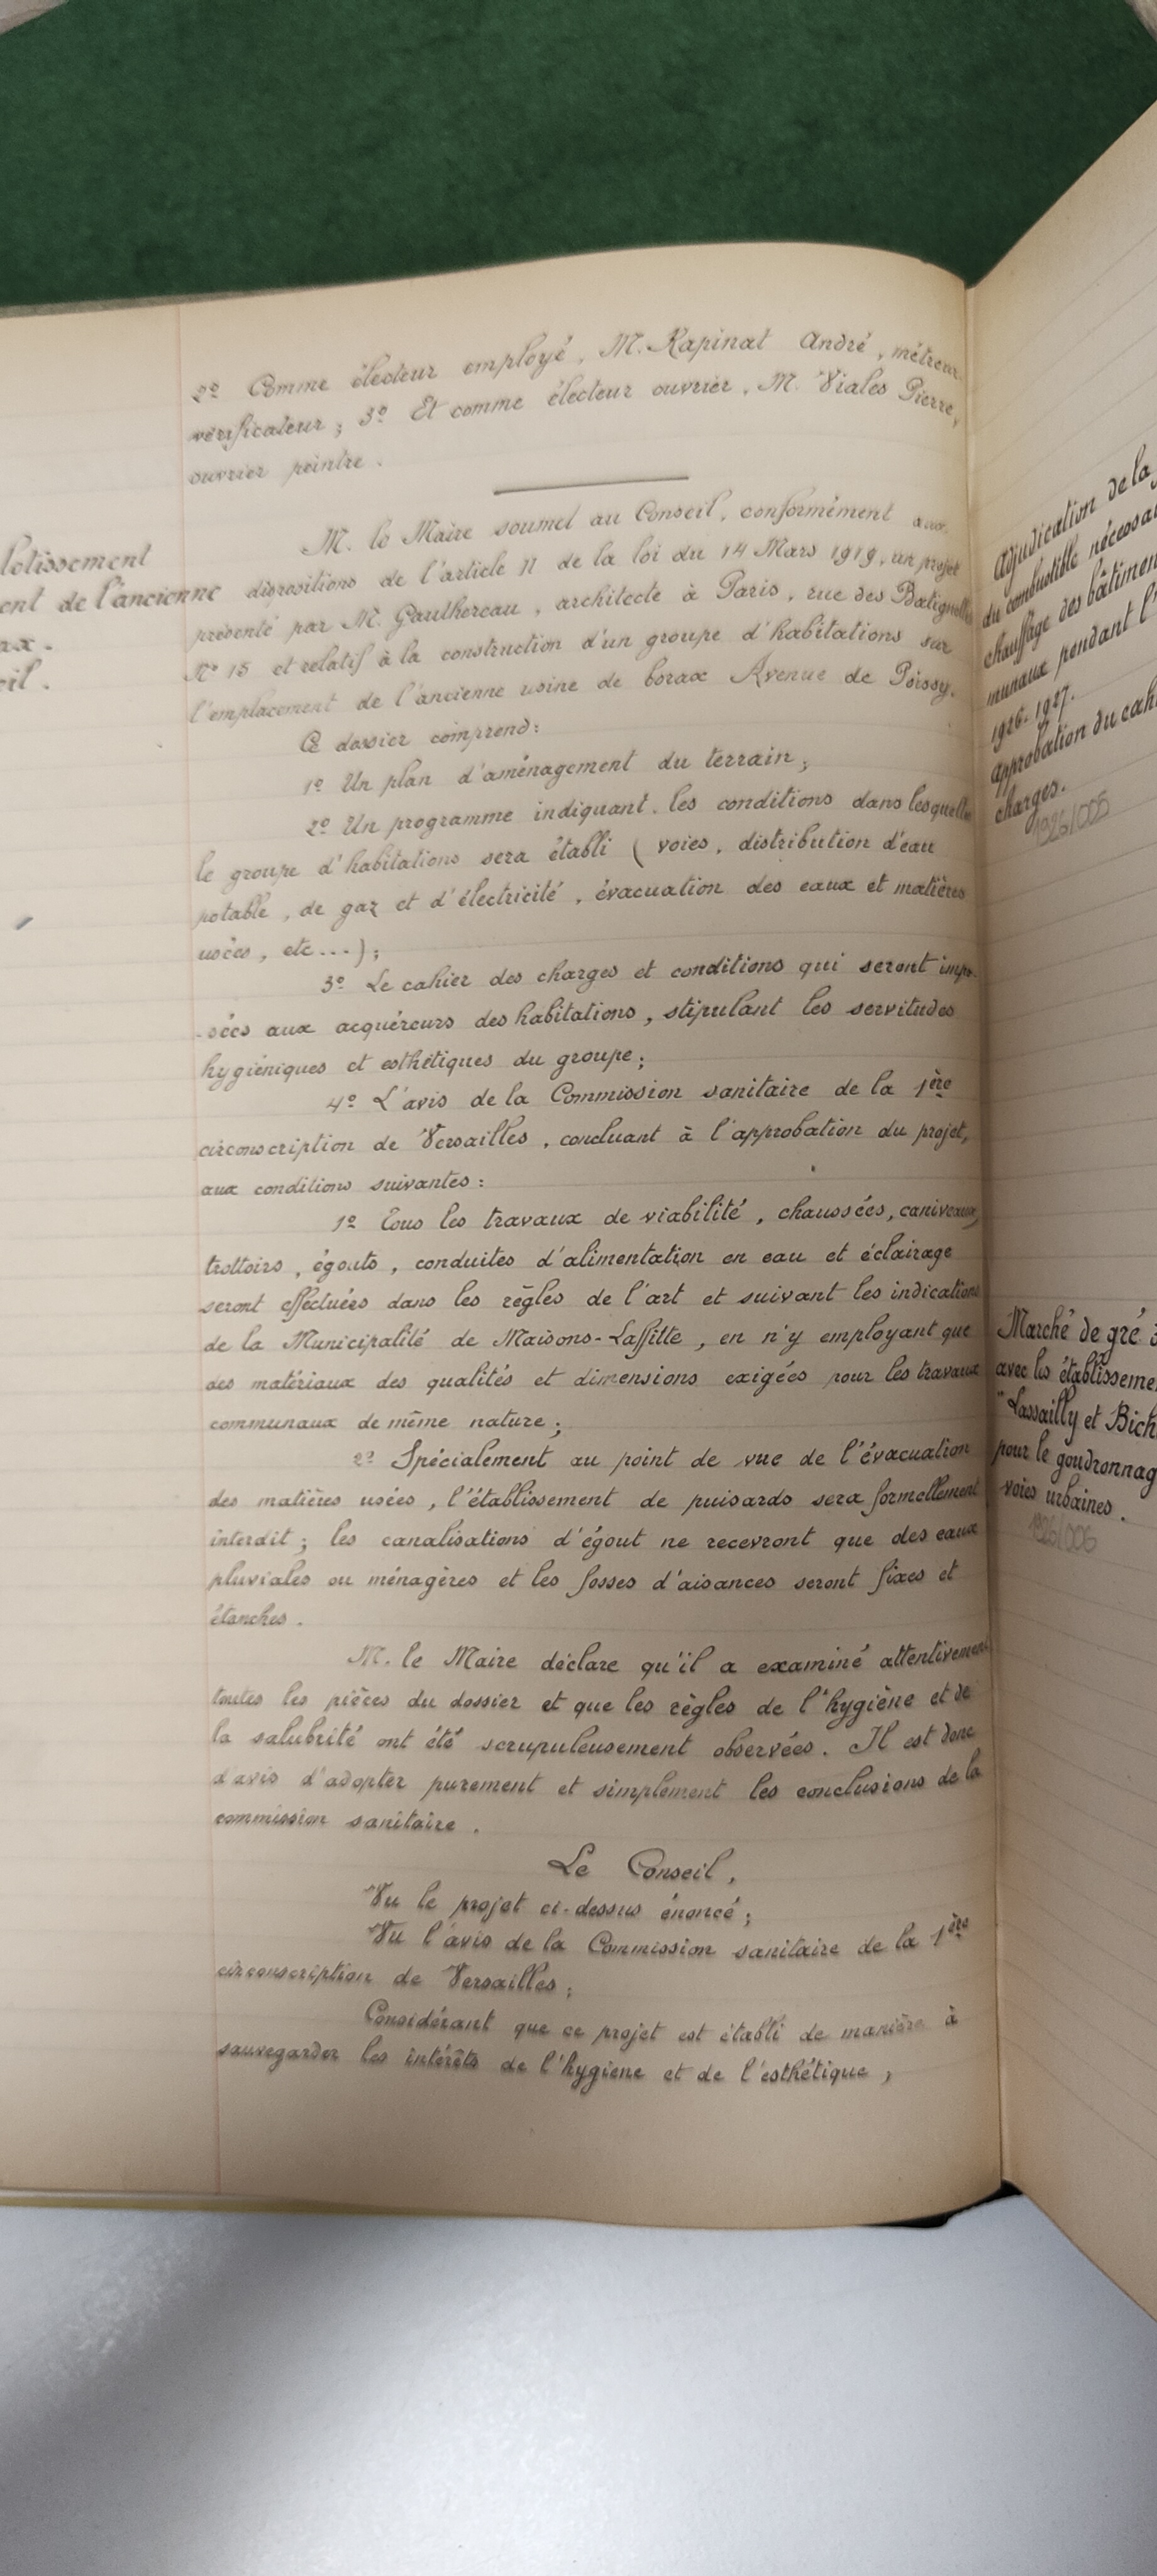 2º Comme électeur employé, M. Rapinat André, métreur
vérificateur ; 3º Et comme électeur ouvrier, M. Viales Pierre,
ouvrier peintre.
lotissement
ent de l'ancienne
ax.
eil.
M. le Maire soumet au Conseil, conformément aux
dispositions de l'article 11 de la loi du 14 Mars 1919, un projet
présenté par M. Gauthereau, architecte à Paris, rue des Batignolles
Nº 15 et relatif à la construction d'un groupe d'habitations sur
l'emplacement de l'ancienne usine de borax Avenue de Poissy.
Ce dossier comprend:
1º Un plan d'aménagement du terrain ;
2º Un programme indiquant les conditions dans lesquelles
le groupe d'habitations sera établi ( voies, distribution d'eau
potable, de gaz et d'électricité, évacuation des eaux et matières
usées, etc...) ;
3º Le cahier des charges et conditions qui seront impo-
-sées aux acquéreurs des habitations, stipulant les servitudes
hygiéniques et esthétiques du groupe ;
4º L'avis de la Commission sanitaire de la 1ère
circonscription de Versailles, concluant à l'approbation du projet,
aux conditions suivantes :
1º Tous les travaux de viabilité, chaussées, caniveaux,
trottoirs, égouts, conduites d'alimentation en eau et éclairage
seront effectuées dans les règles de l'art et suivant les indications
de la Municipalité de Maisons-Laffitte, en n'y employant que
des matériaux des qualités et dimensions exigées pour les travaux
communaux de même nature ;
2º Spécialement au point de vue de l'évacuation
des matières usées, l'établissement de puisards sera formellement
interdit ; les canalisations d'égout ne recevront que des eaux
pluviales ou ménagères et les fosses d'aisances seront fixes et
étanches.
M. le Maire déclare qu'il a examiné attentivement
toutes les pièces du dossier et que les règles de l'hygiène et de
la salubrité ont été scrupuleusement observées. Il est donc
d'avis d'adopter purement et simplement les conclusions de la
commission sanitaire.
Le Conseil,
Vu le projet ci-dessus énoncé ;
Vu l'avis de la Commission sanitaire de la 1ère
circonscription de Versailles ;
Considérant que ce projet est établi de manière à
sauvegarder les intérêts de l'hygiène et de l'esthétique,
Adjudication de la
du combustible nécessai
chauffage des bâtimen
munaux pendant l'
1926-1927.
Approbation du cah
charges.
1926/005
Marché de gré à
avec les établisseme
"Lassailly et Bich
pour le goudronnag
voies urbaines.
1926/006